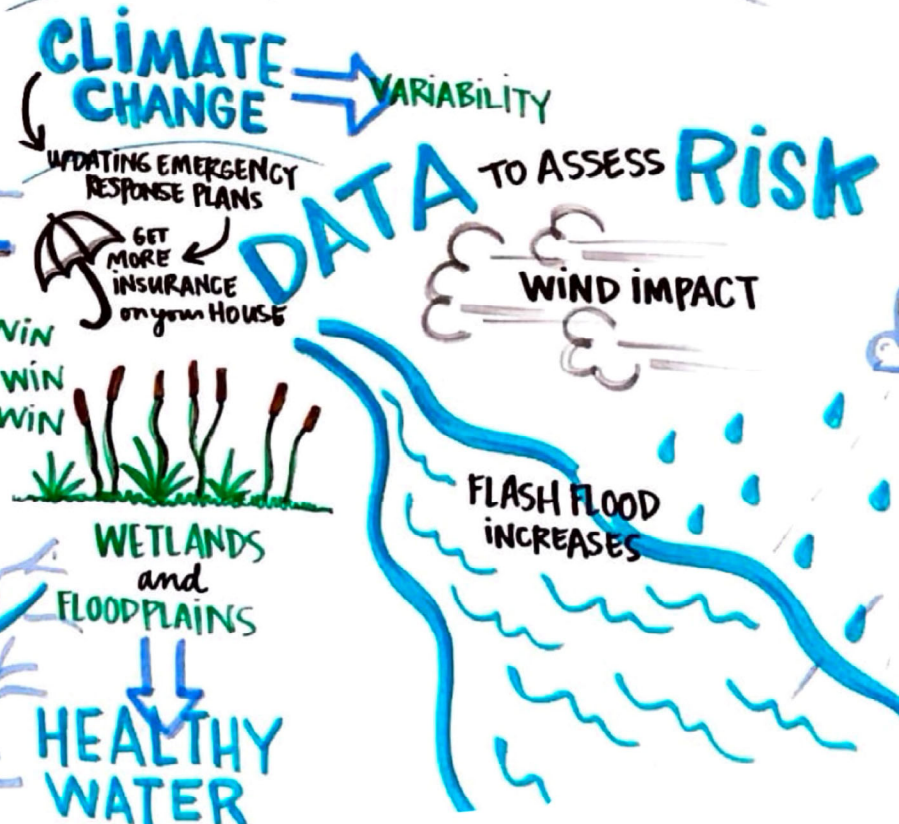 CLIMATE
CHANGE
VARIABILITY
UPDATING EMERGENCY
RESPONSE PLANS
GET
MORE
INSURANCE
on your HOUSE
DATA TO ASSESS RISK
WIND IMPACT
WIN
WIN
WIN
FLASH FLOOD
INCREASES
WETLANDS
and
FLOODPLAINS
HEALTHY
WATER